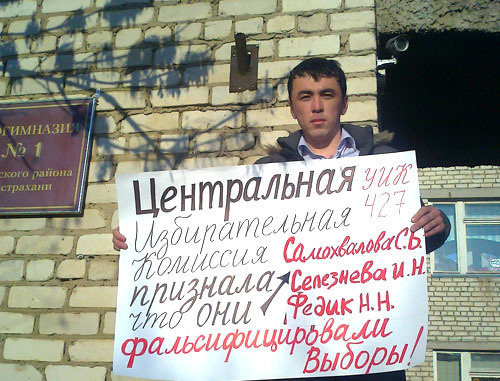 ОГИМНАЗИЯ
№ 1
ского района
страхани
Центральная
УИК
427
Избирательная
Комиссия
признала
что они
Самохвалова С.В.
Селезнева И.Н.
Федик Н.Н.
фальсифицировали
Выборы!